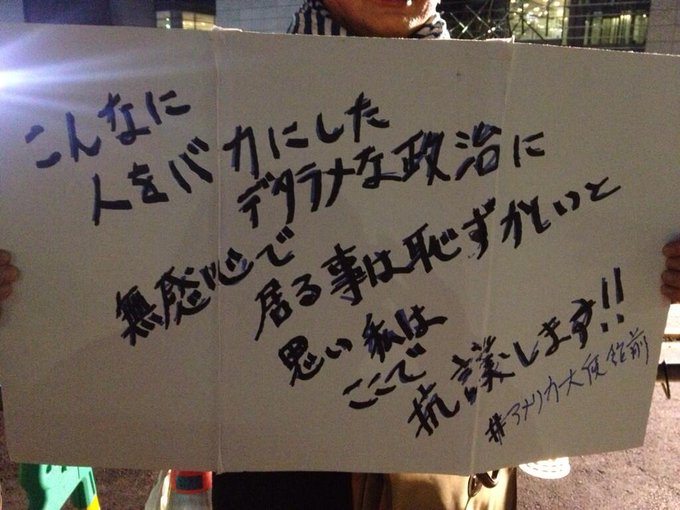 こんなに
人をバカにした
デタラメな政治に
無感心で
居る事は恥ずかしいと
思い私は
ここで
抗議します!!
#アメリカ大使館前